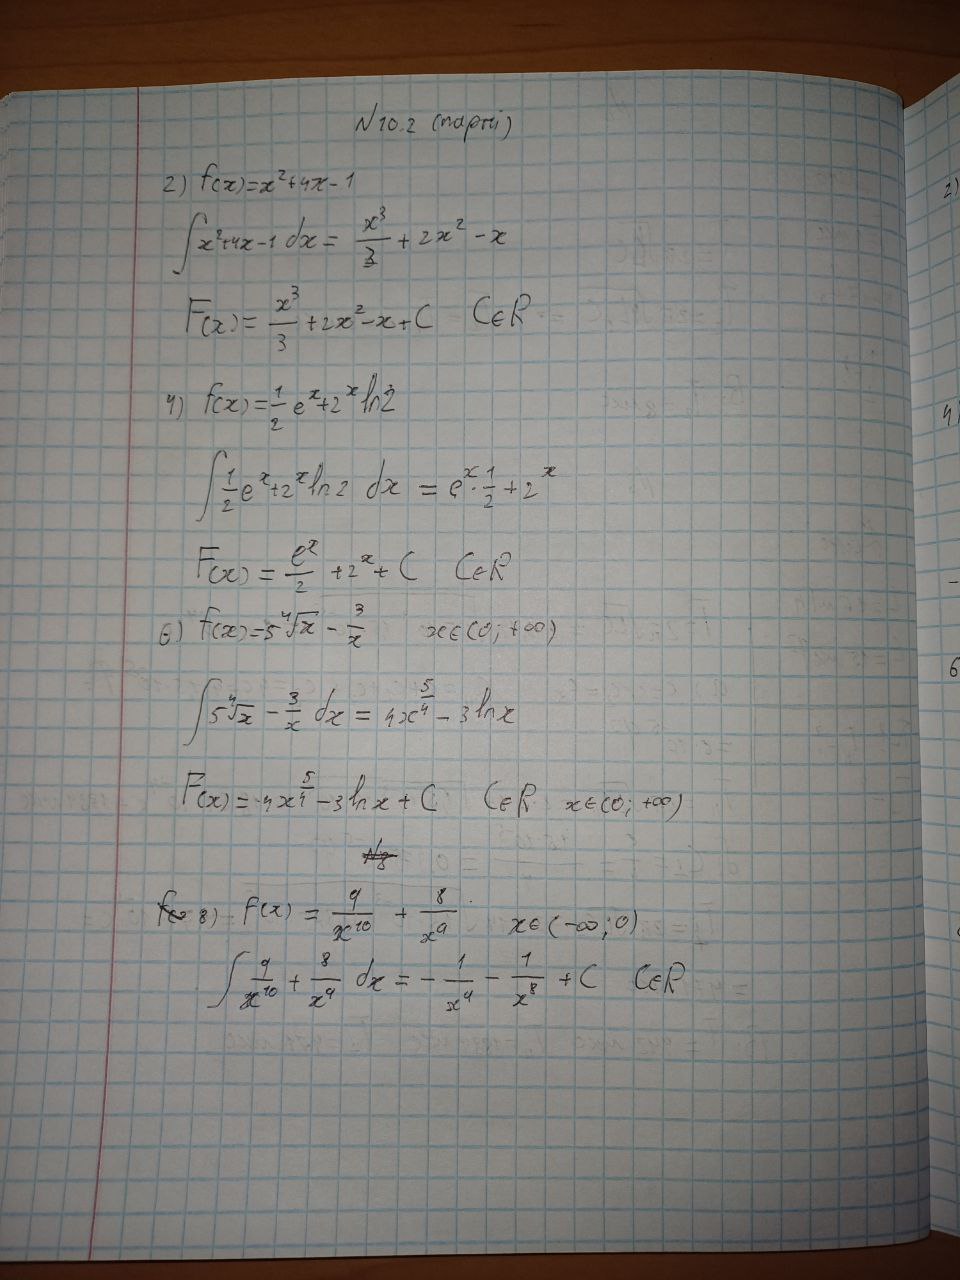 N 10.2 (парні)
2) f(x)=x²+4x-1
∫x²+4x-1 dx = x³/3 + 2x² - x
F(x) = x³/3 + 2x² - x + C C∈R
4) f(x) = 1/2 e^x + 2^x ln2
∫ 1/2 e^x + 2^x ln2 dx = e^x · 1/2 + 2^x
F(x) = e^x/2 + 2^x + C C∈R
6) f(x) = 5 ⁴√x - 3/x x∈(0; +∞)
∫ 5 ⁴√x - 3/x dx = 4x^(5/4) - 3 ln x
F(x) = 4x^(5/4) - 3 ln x + C C∈R x∈(0; +∞)
8) f(x) = 9/x¹⁰ + 8/x⁹ x∈(-∞; 0)
∫ 9/x¹⁰ + 8/x⁹ dx = - 1/x⁹ - 1/x⁸ + C C∈R
2)
4)
6